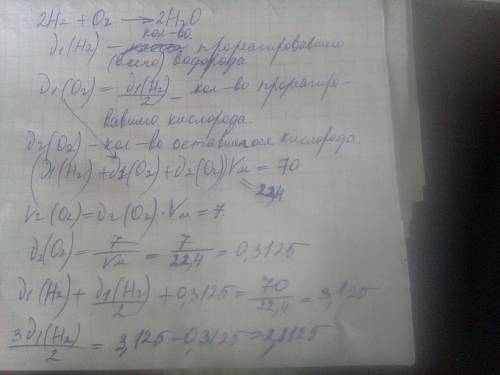 2H₂ + O₂ → 2H₂O
кол-во
ν₁(H₂) – прореагировавшего
(всего) водорода
ν₁(O₂) = ν₁(H₂)/2 – кол-во прореагиро-
вавшего кислорода.
ν₂(O₂) – кол-во оставшегося кислорода.
(ν₁(H₂) + ν₁(O₂) + ν₂(O₂))Vм = 70
22,4
V₂(O₂) = ν₂(O₂)·Vм = 7.
ν₂(O₂) = 7/Vм = 7/22,4 = 0,3125
ν₁(H₂) + ν₁(H₂)/2 + 0,3125 = 70/22,4 = 3,125
3ν₁(H₂)/2 = 3,125 – 0,3125 = 2,8125